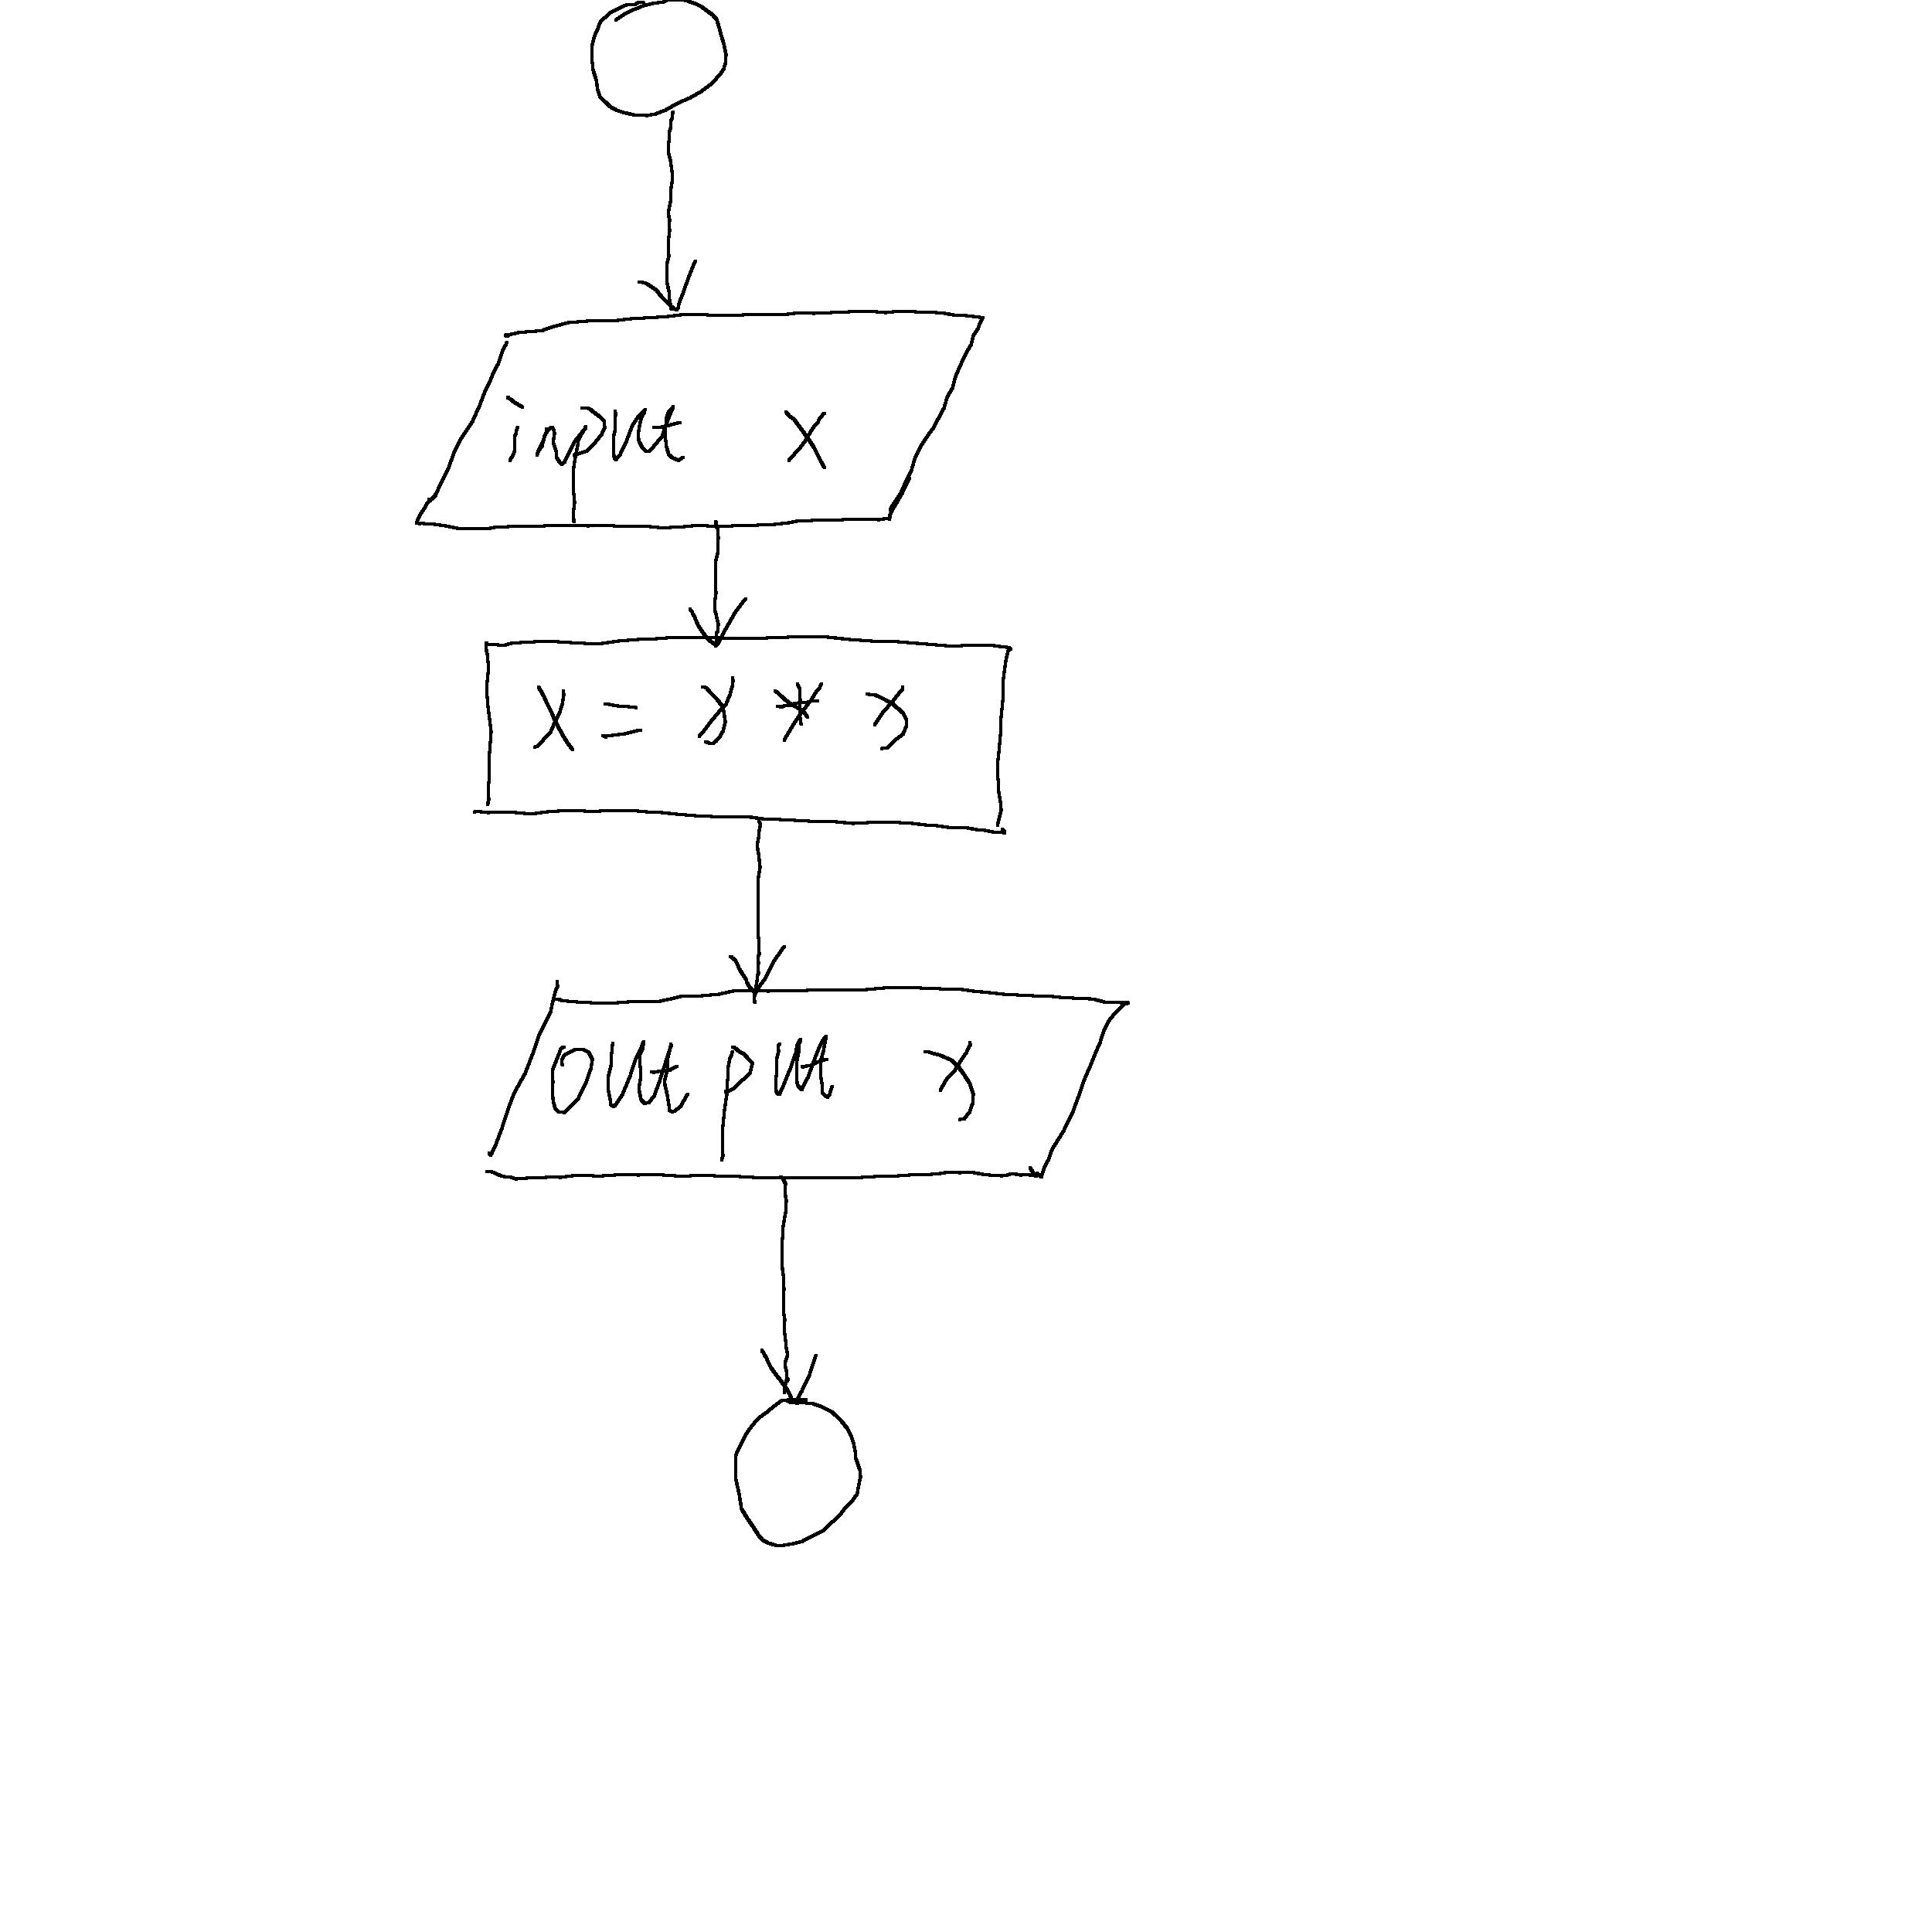 input X
X = x * x
output x